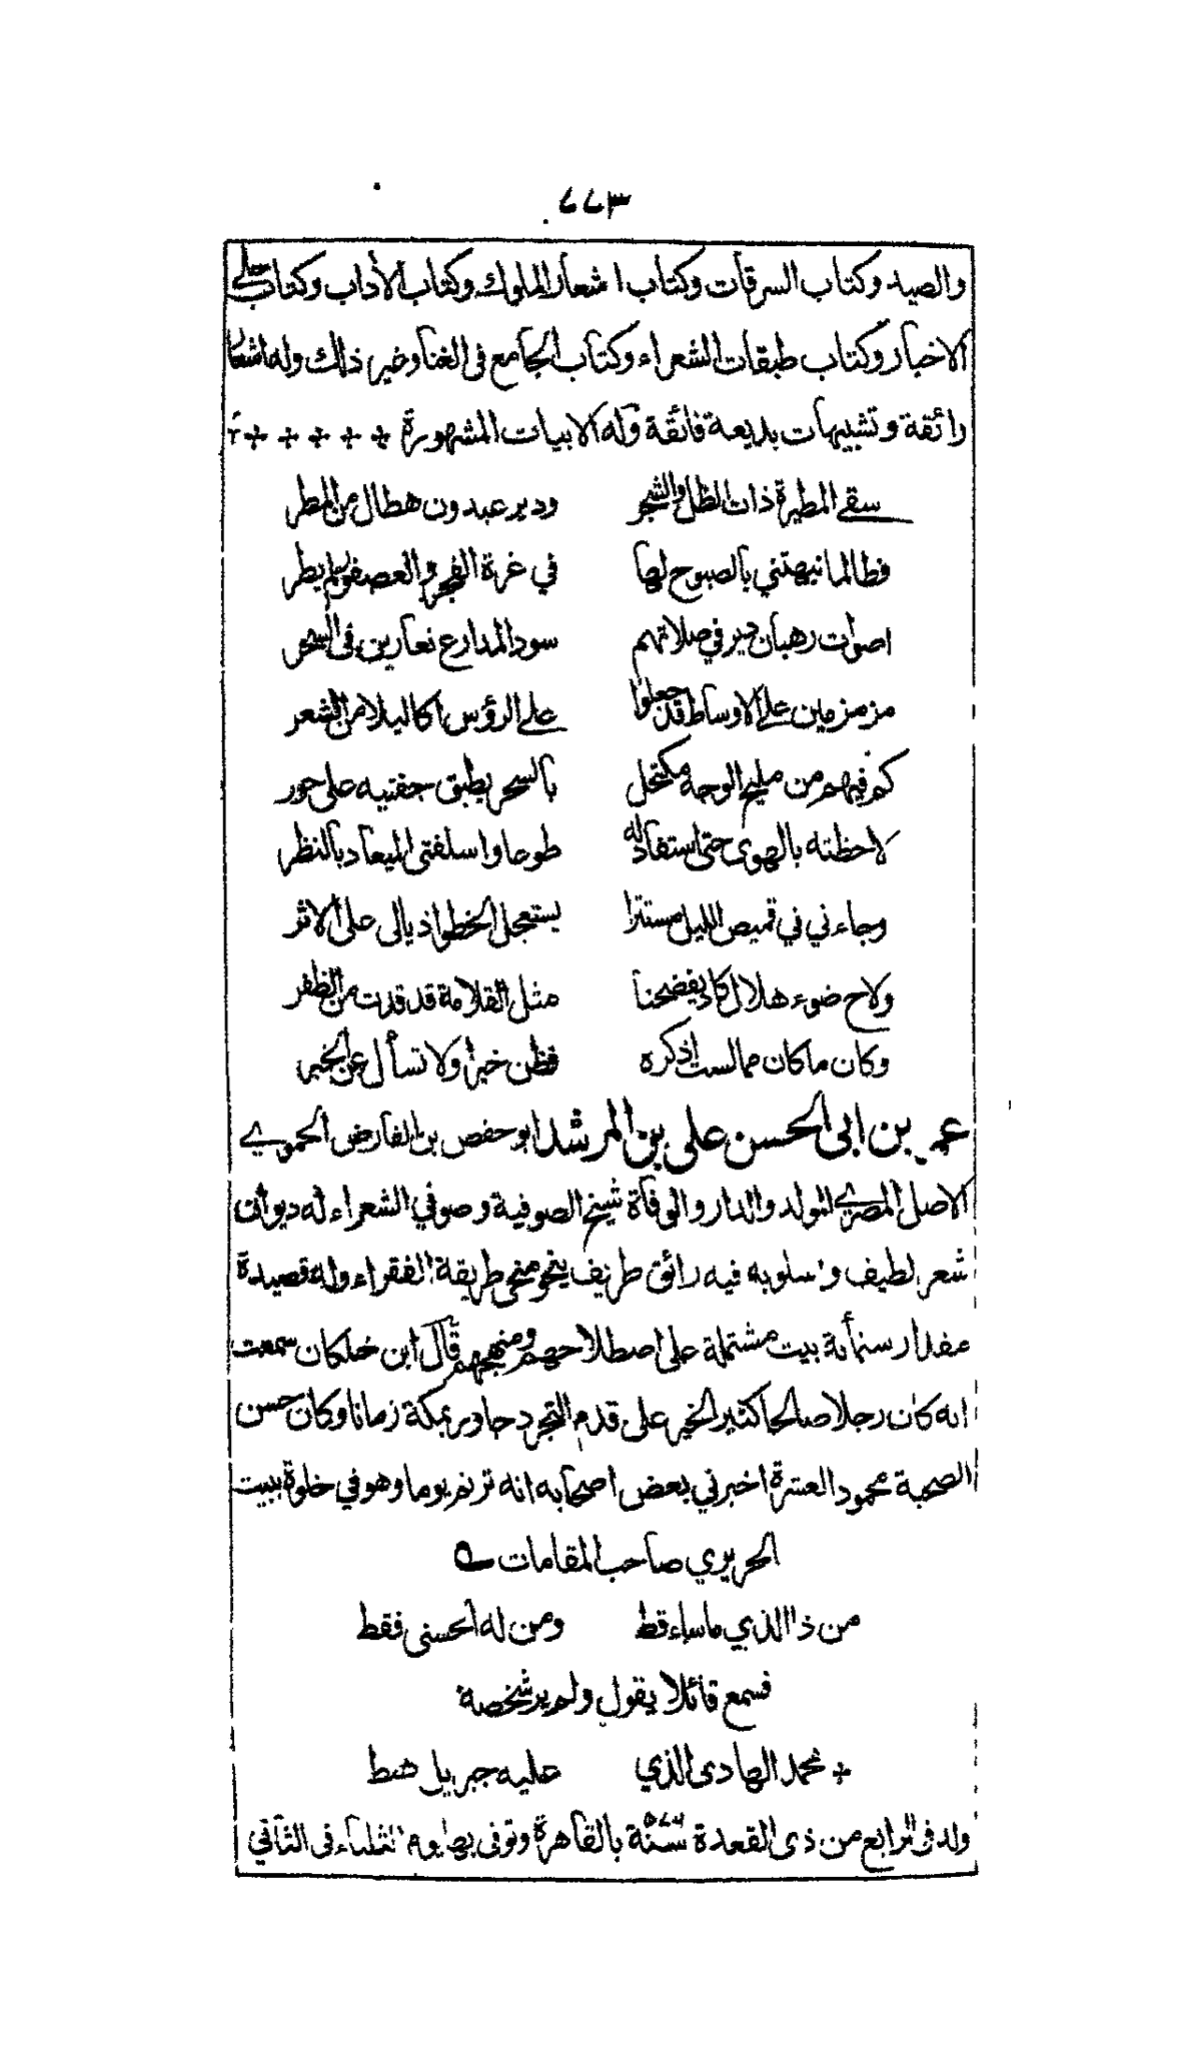 ٦٦٣
والصيد وكتاب السرقات وكتاب اشعار الملوك وكتاب الآداب وكتاب حلي
الاخبار وكتاب طبقات الشعراء وكتاب الجامع فى الغنا وغير ذالك وله اشعار
رائقة وتشبيهات بديعة فائقة وله الابيات المشهورة
سقى المطيرة ذات الظل والشجر ودير عبدون هطال من المطر
فطالما نبهتني بالصبوح لها في غرة الفجر والعصفور لم يطر
اصوات رهبان دير في صلاتهم سود المدارع نعارين فى السحر
مزمزمين على الاوساط قد جعلوا على الرؤس اكاليلا من الشعر
كم فيهم من مليح الوجه مكتحل بالسحر يطبق جفنيه على حور
لاحظته بالهوى حتى استقاد له طوعا واسلفنى الميعاد بالنظر
وجاءني في قميص الليل مستترا يستعجل الخطو اذيالى على الاثر
ولاح ضوء هلال كاد يفضحنا مثل القلامة قد قدت من الظفر
وكان ما كان مما لست اذكره فظن خيرا ولا تسأل عن الخبر
عمر بن ابى الحسن على بن المرشد ابو حفص بن الفارض الحموي
الاصل المصري المولد والدار والوفاة شيخ الصوفية وصوفي الشعراء له ديوان
شعر لطيف واسلوبه فيه رائق ظريف ينحو منحى طريقة الفقراء وله قصيدة
مقدار ستمأة بيت مشتملة على اصطلاحهم ومنهجهم قال ابن خلكان سمعت
انه كان رجلا صالحا كثير الخير على قدم التجرد جاور بمكة زمانا وكان حسن
الصحبة محمود العشرة اخبرني بعض اصحابه انه ترنم يوما وهو في خلوة ببيت
الحريري صاحب المقامات
من ذا الذي ما ساء قط ومن له الحسنى فقط
فسمع قائلا يقول ولم ير شخصه
محمد الهادى الذي عليه جبريل هبط
ولد فى الرابع من ذى القعدة سنة بالقاهرة وتوفى بها يوم الثلثاء فى الثانى